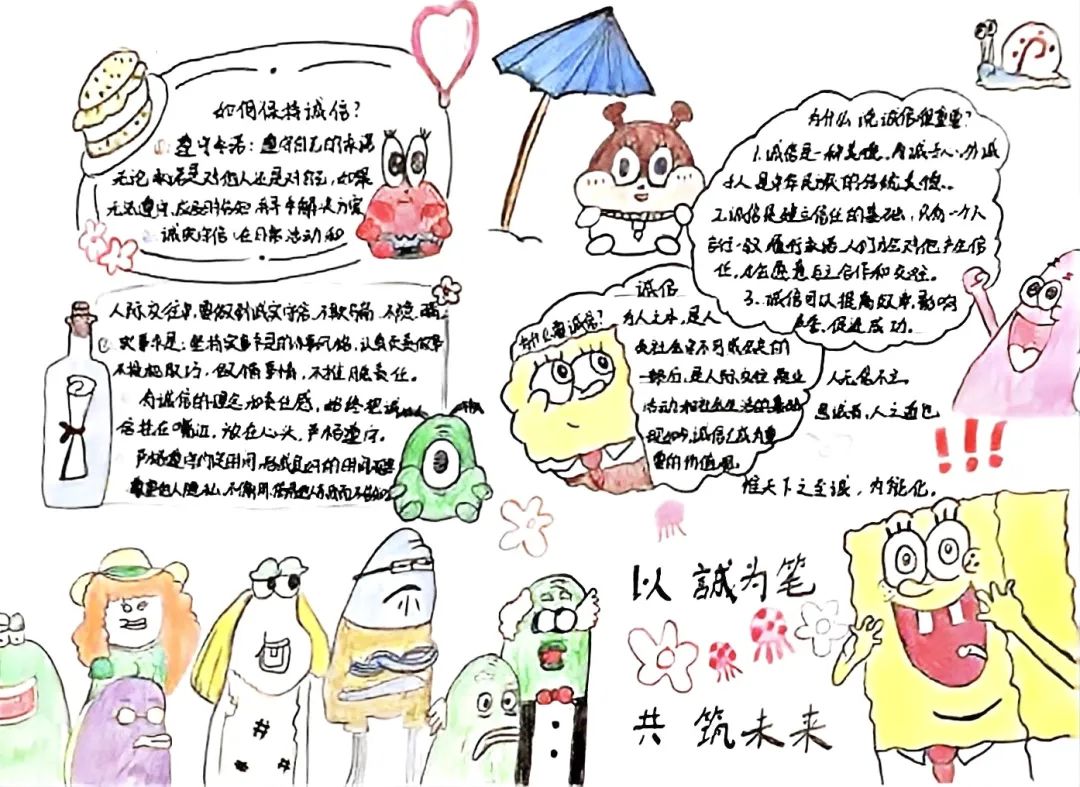 如何保持诚信？
遵守承诺：遵守自己的承诺
无论承诺是对他人还是对自己，如果
无法遵守，应及时告知并寻求解决方案
诚实守信：在日常活动和
人际交往中，要做到诚实守信，不欺骗，不隐瞒
实事求是：坚持实事求是的办事风格，认真负责做事
不投机取巧，做错事情，不推脱责任。
有诚信的理念和责任感，始终把诚
信挂在嘴边，放在心头，严格遵守。
严格遵守约定时间，形成良好的时间
尊重他人隐私，不
为什么说诚信很重要？
1.诚信是一种美德，
人是中华民族的传统美德。
2.诚信是建立信任的基础，只有一个人
言行一致，履行承诺，人们才会对他产生信
任，才会愿意与之合作和交往。
3.诚信可以提高效率，影响
声誉，促进成功。
为什么要诚信？
诚信
为人之本，是人
类社会不可或缺的
一部分，是人际交往、商业
活动和社会生活的基础
现如今，诚信已成为重
要的价值观
人无信不立
思诚者，人之道也
惟天下之至诚，为能化。
!!!
以誠为笔
共筑未来